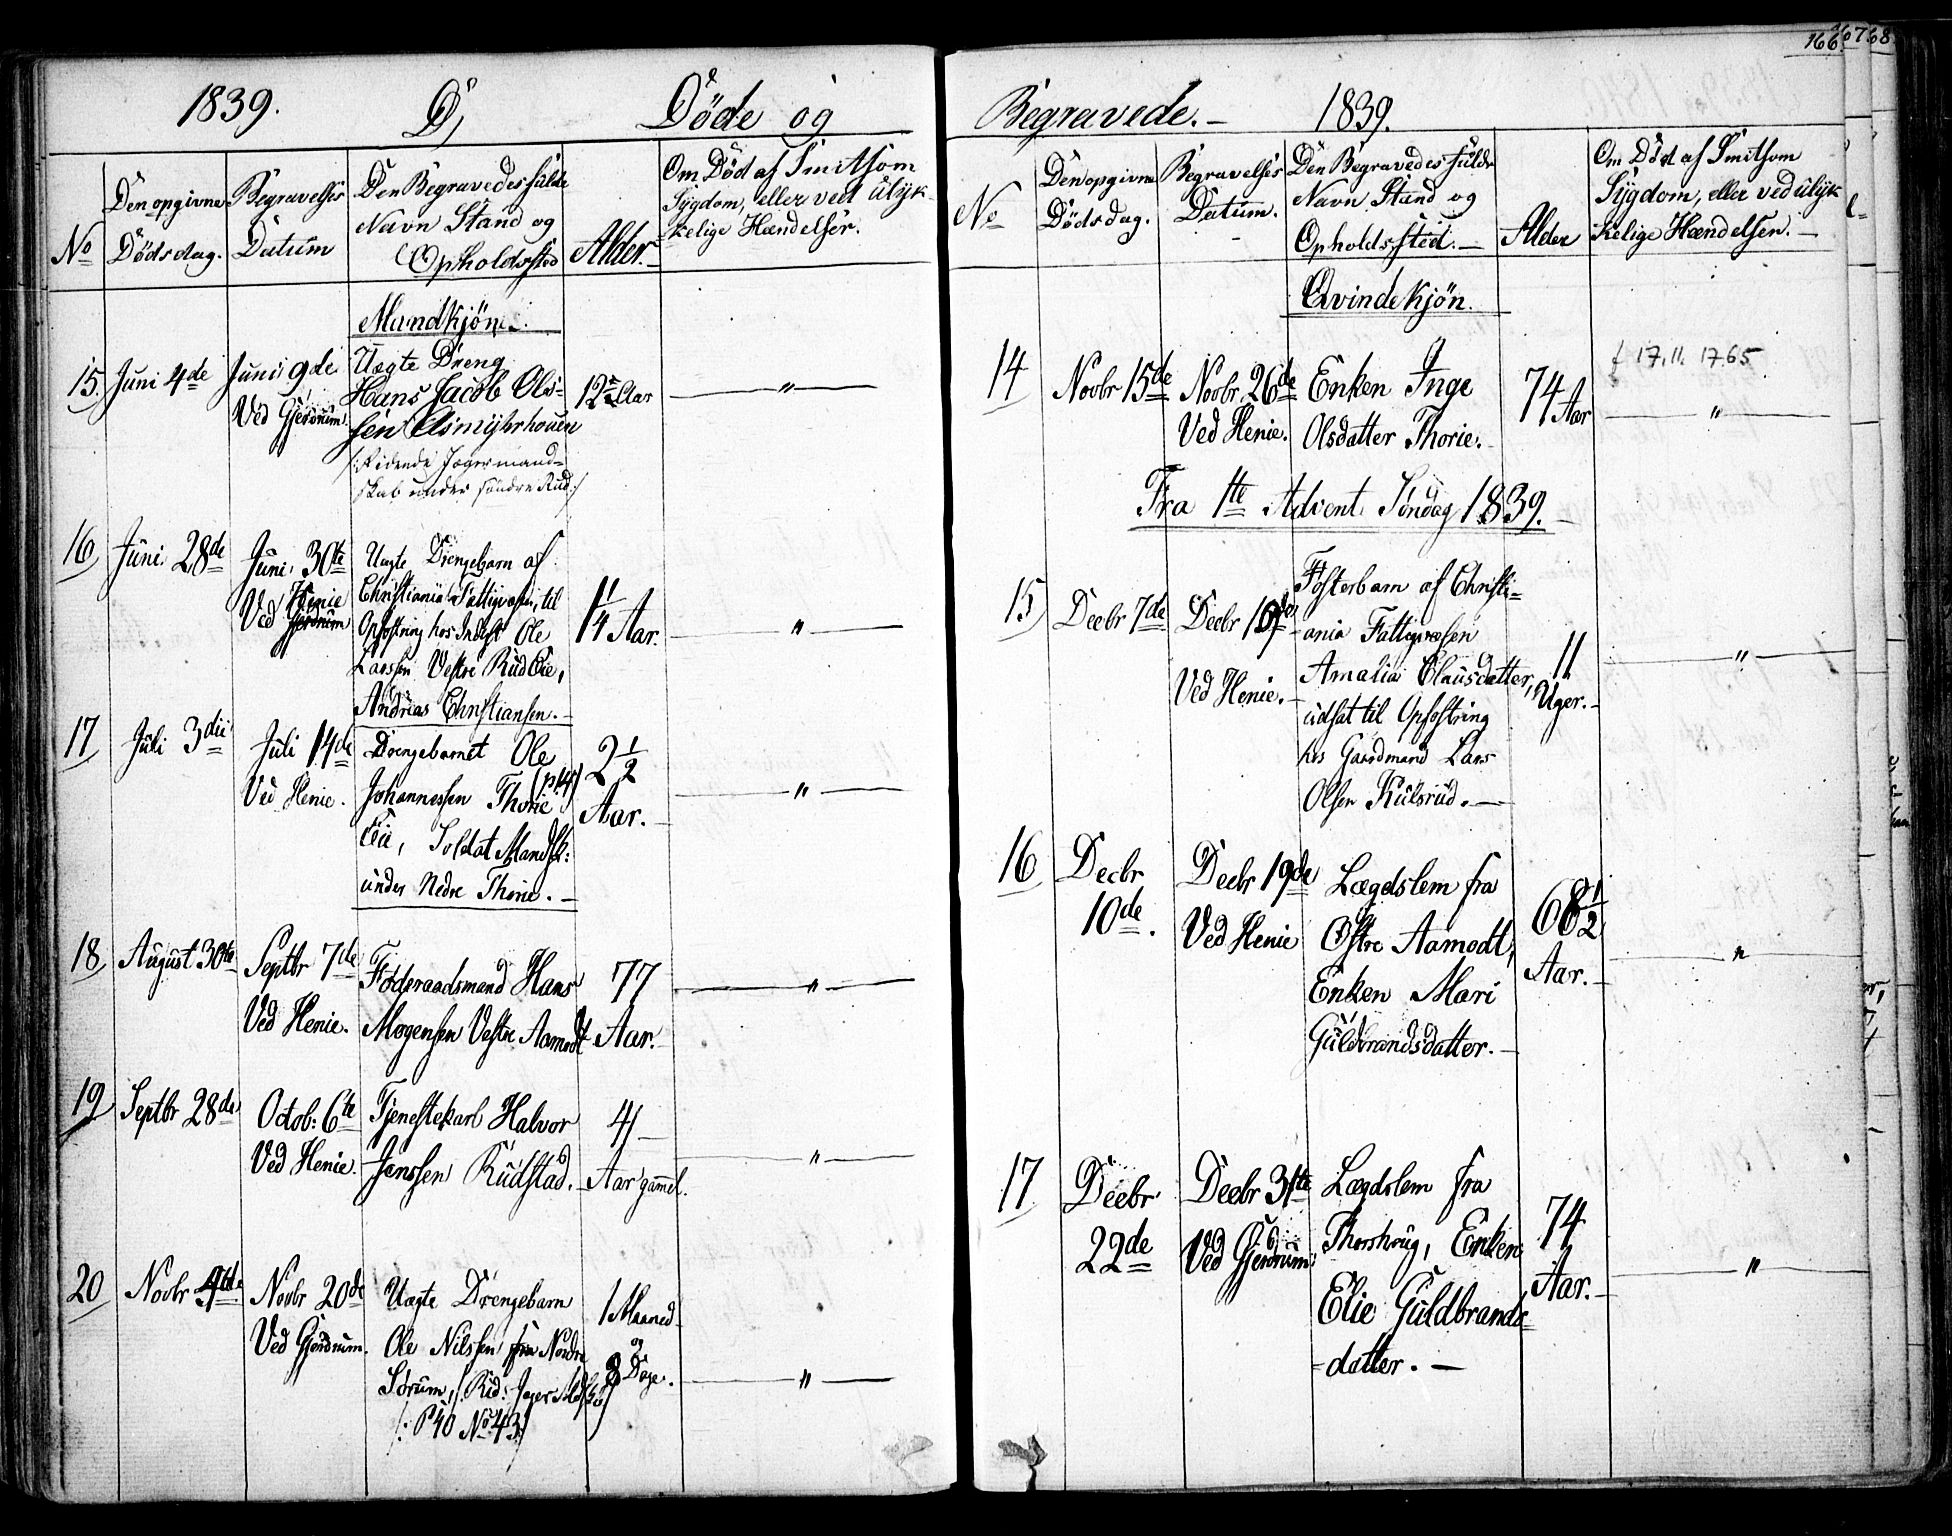 1839. D, Döde og
No
Den opgivne
Dödsdag.
Begravelses
Datum
Den Begravedes fulde
Navn Stand og
Opholdssted
Alder.
Om Död af Smitsom
Sygdom, eller ved ulyk-
kelige Hændelser.
Mandkjön.
15.
Juni 4de
Juni 9de
Ved Gjerdrum.
Uægte Dreng
Hans Jacob Ols-
sen Asmyhrhouen
/: Ridende Jægermand-
skab under söndre Rud:/
12 Aar
"
16
Juni 28de
Juni 30te
Henie
Ved Gjerdrum
Uægte Drengebarn af
Christiania Fattigvæsen, til
Opfostring hos Inderst Ole
Larssen Vestre Rud Eie,
Andreas Christiansen.
1 1/4 Aar.
"
17
Juli 3die
Juli 14de
Ved Henie.
Drengebarnet Ole
Johannessen Thorie (p. 14)
Eie, Soldat Mandsk:
under Nedre Thorie.
2 1/2
Aar.
"
18
August 30te
Septbr 7de
Ved Henie.
Föderaadsmand Hans
Mogensen Vestre Aamodt
77
Aar.
"
19
Septbr 28de
Octob: 6te
Ved Henie.
Tjenestekarl Halvor
Jenssen Rudstad.
41
Aar gammel.
"
20
Novbr
Novbr 20de
Ved Gjerdrum.
Uægte Drengebarn
Ole Nilssen fra Nordre
Sörum, /: Rid: Jæger
/: P 40 No 43/
1 Maaned
og
8 Dage.
"
166
Begravede. 1839.
No
Den opgivne
Dödsdag.
Begravelses
Datum.
Den Begravedes fulde
Navn Stand og
Opholdssted.
Alder
Om Död af Smitsom
Sygdom, eller ved ulyk
kelige Hændelser.
Qvindekjön.
14
Novbr 15de
Novbr 26de
Ved Henie.
Enken Inge
Olsdatter Thorie.
74 Aar
f 17.11.1765
"
Fra 1te Advent Söndag 1839.
15
Decbr 7de
Decbr
Ved Henie.
Fosterbarn af Christi-
ania Fattigvæsen
Amalia Clausdatter,
udsat til Opfostring
hos Gaardmand Lars
Olsen Kulsrud.
11
Uger.
"
16
Decbr
10de.
Decbr 19de
Ved Henie
Lægdslem fra
Östre Aamodt,
Enken Mari
Guldbrandsdatter.
68 1/2
Aar.
"
17
Decbr
22de
Decbr 31te
Ved Gjerdrum
Lægdslem fra
Thorshoug, Enken
Elie Guldbrands-
datter.
74
Aar.
"